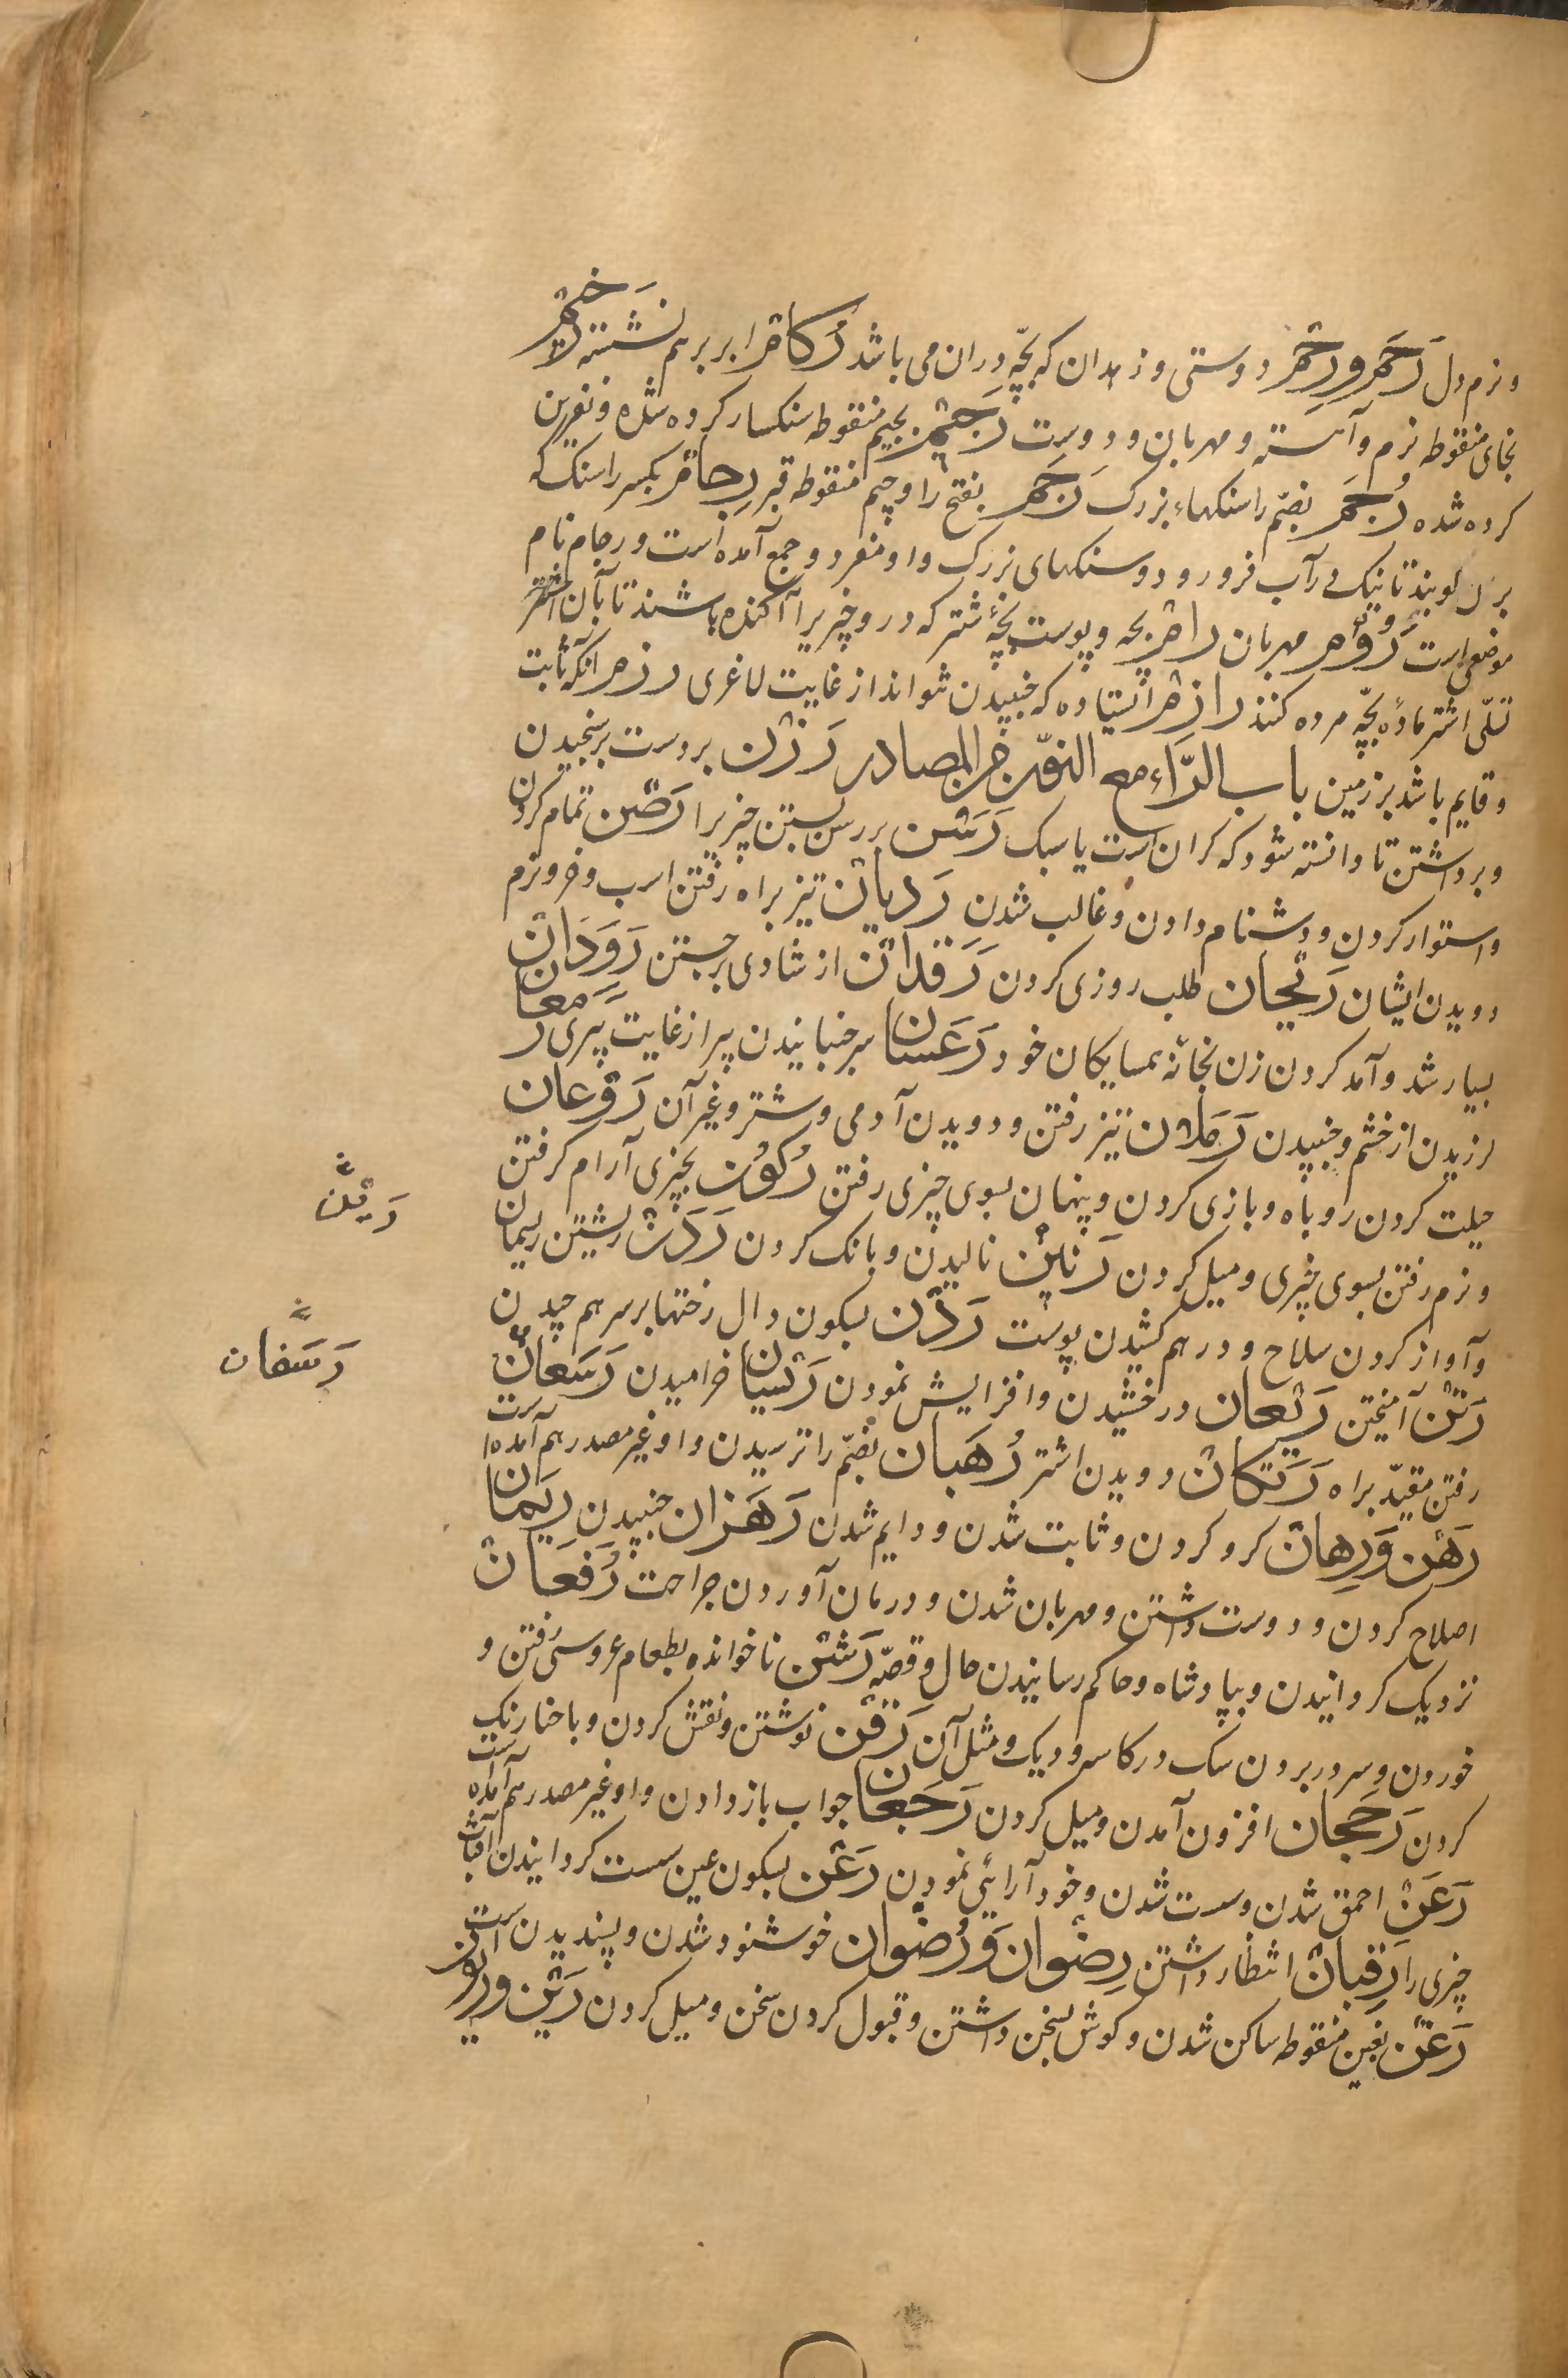 و نرم دل رَحِم و رِحْم دوستی و زهدان که بچّه در ان می باشد رُکام ابر بر هم نشسته رَخیم
بخای منقوطه نرم و آهسته و مهربان و دوست رَجیم بجیم منقوطه سنکسار کرده شده و نفرین
کرده شده رُجَم بضمّ را سنکهاء بزرک رَجَم بفتح را و جیم منقوطه قبر رِجام بکسر را سنک که
بر دلو بندند تا نیک در آب فرو رود و سنکهای بزرک و او مفرد و جمع آمده است و رجام نام
موضعی است رَؤُم مهربان رایم بچه و پوست بچّهٔ شتر که در و چیزیرا آکنده باشند تا بآن اشتر
تسلّی اشتر ماده بچّه مرده کنند رازم ایستاده که جنبیدن نتواند از غایت لاغری رزم انکه ثابت
و قایم باشد بر زمین باب الرّاء مع النون من المصادر رَزْن بر دست برسنجیدن
و برداشتن تا دانسته شود که کران است یا سبک رَسْن بر رسن بستن چیزیرا رَصْن تمام کردن
و استوار کردن و دشنام دادن و غالب شدن رَدَیان تیز براه رفتن اسب و خر و نرم
دویدن ایشان رَیَحان طلب روزی کردن رَقَدان از شادی برجستن رَوَدان
بسیار شد و آمد کردن زن بخانهٔ همسایکان خود رَعَسان سر جنبانیدن پیر از غایت پیری رَمَعان
لرزیدن از خشم و جنبیدن رَمَلان تیز رفتن و دویدن آدمی و شتر و غیر آن رَوَغان
حیلت کردن روباه و بازی کردن و پنهان بسوی چیزی رفتن رُکون بچیزی آرام کرفتن
و نرم رفتن بسوی چیزی و میل کردن رَنین نالیدن و بانک کردن رَدَن رشتن ریسمان
و آواز کردن سلاح و در هم کشیدن پوست رَدْن بسکون دال رختها بر سر هم چیدن
رَتْن آمیختن رَیَعان درخشیدن و افزایش نمودن رَیَسان خرامیدن رَسَعان
رفتن مقیّد براه رَتَکان دویدن اشتر رُهبان بضمّ را ترسیدن و او غیر مصدر هم آمده است
رَهْن وَ رِهان کرو کردن و ثابت شدن و دایم شدن رَهَزان جنبیدن رِیمان
اصلاح کردن و دوست داشتن و مهربان شدن و درمان آوردن جراحت رُفْعان
نزدیک کردانیدن و بپادشاه و حاکم رسانیدن حال و قصّه رَشْن ناخوانده بطعام عروسی رفتن و
خوردن و سر در بردن سک در کاسه و دیک و مثل آن رَقْن نوشتن و نقش کردن و با حنا رنک
کردن رَجَحان افزون آمدن و میل کردن رَجعان جواب باز دادن و او غیر مصدر هم آمده است
رَعَن احمق شدن و سست شدن و خود آرائی نمودن رَعْن بسکون عین سست کردانیدن آفتاب
چیزی را رِقبان انتظار داشتن رِضوان وَ رُضوان خوشنود شدن و پسندیدن است
رَغْن بغین منقوطه ساکن شدن و کوش بسخن داشتن و قبول کردن سخن و میل کردن رَیْن و ریون
رَسَفان